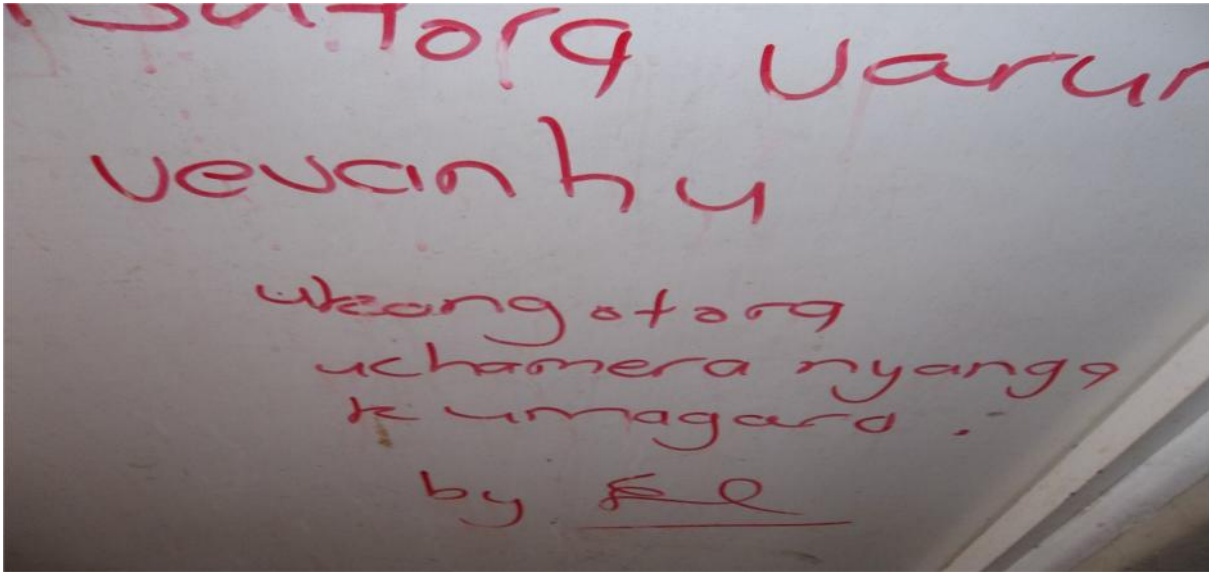 satora varu
vevanhu
ukangotora
uchamera nyanga
kumagaro.
by